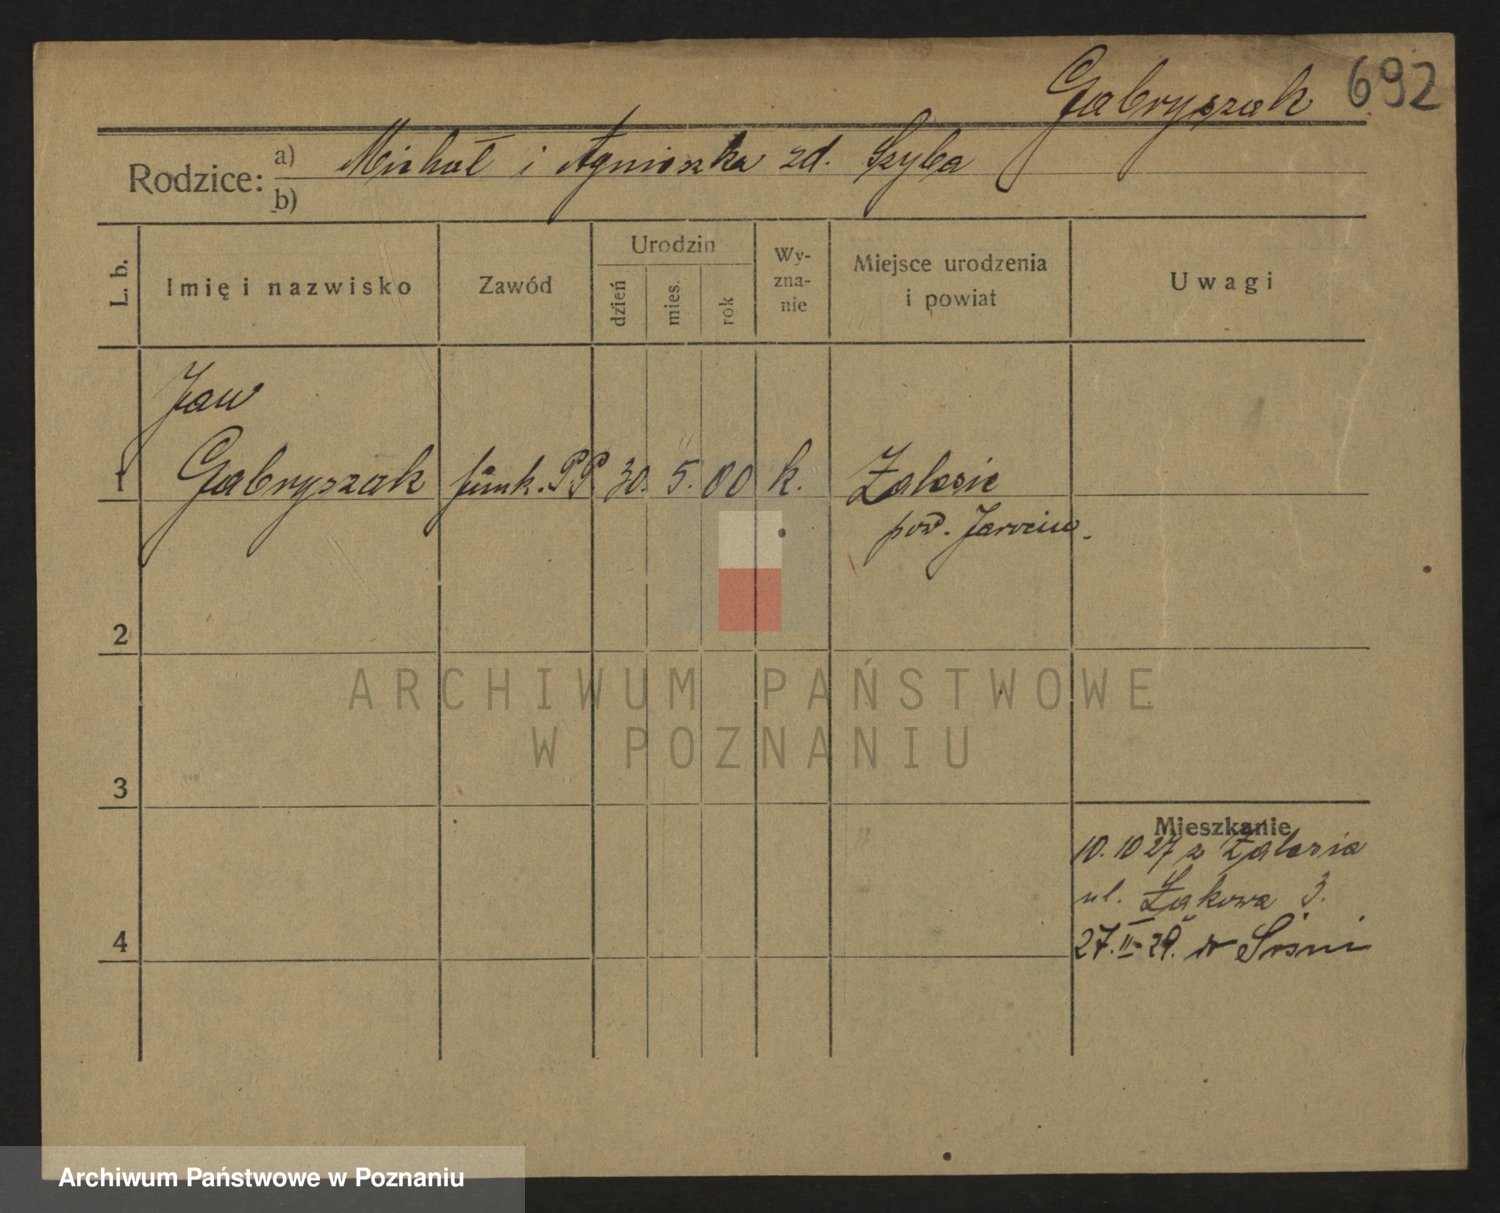 Gabryszak 692
Rodzice: a) Michał i Agnieszka zd. Szyba
b)
L. b. Imię i nazwisko Zawód Urodzin dzień mies. rok Wyzna-nie Miejsce urodzenia i powiat Uwagi
Jan
1 Gabryszak funk. PP 30. 5. 00 k. Zalesie
pow. Jarocin.
2
ARCHIWUM PAŃSTWOWE
W POZNANIU
3
Mieszkanie
10.10 27 z Zalesia
ul. Łąkowa 3.
4 27.II-29. w
Archiwum Państwowe w Poznaniu